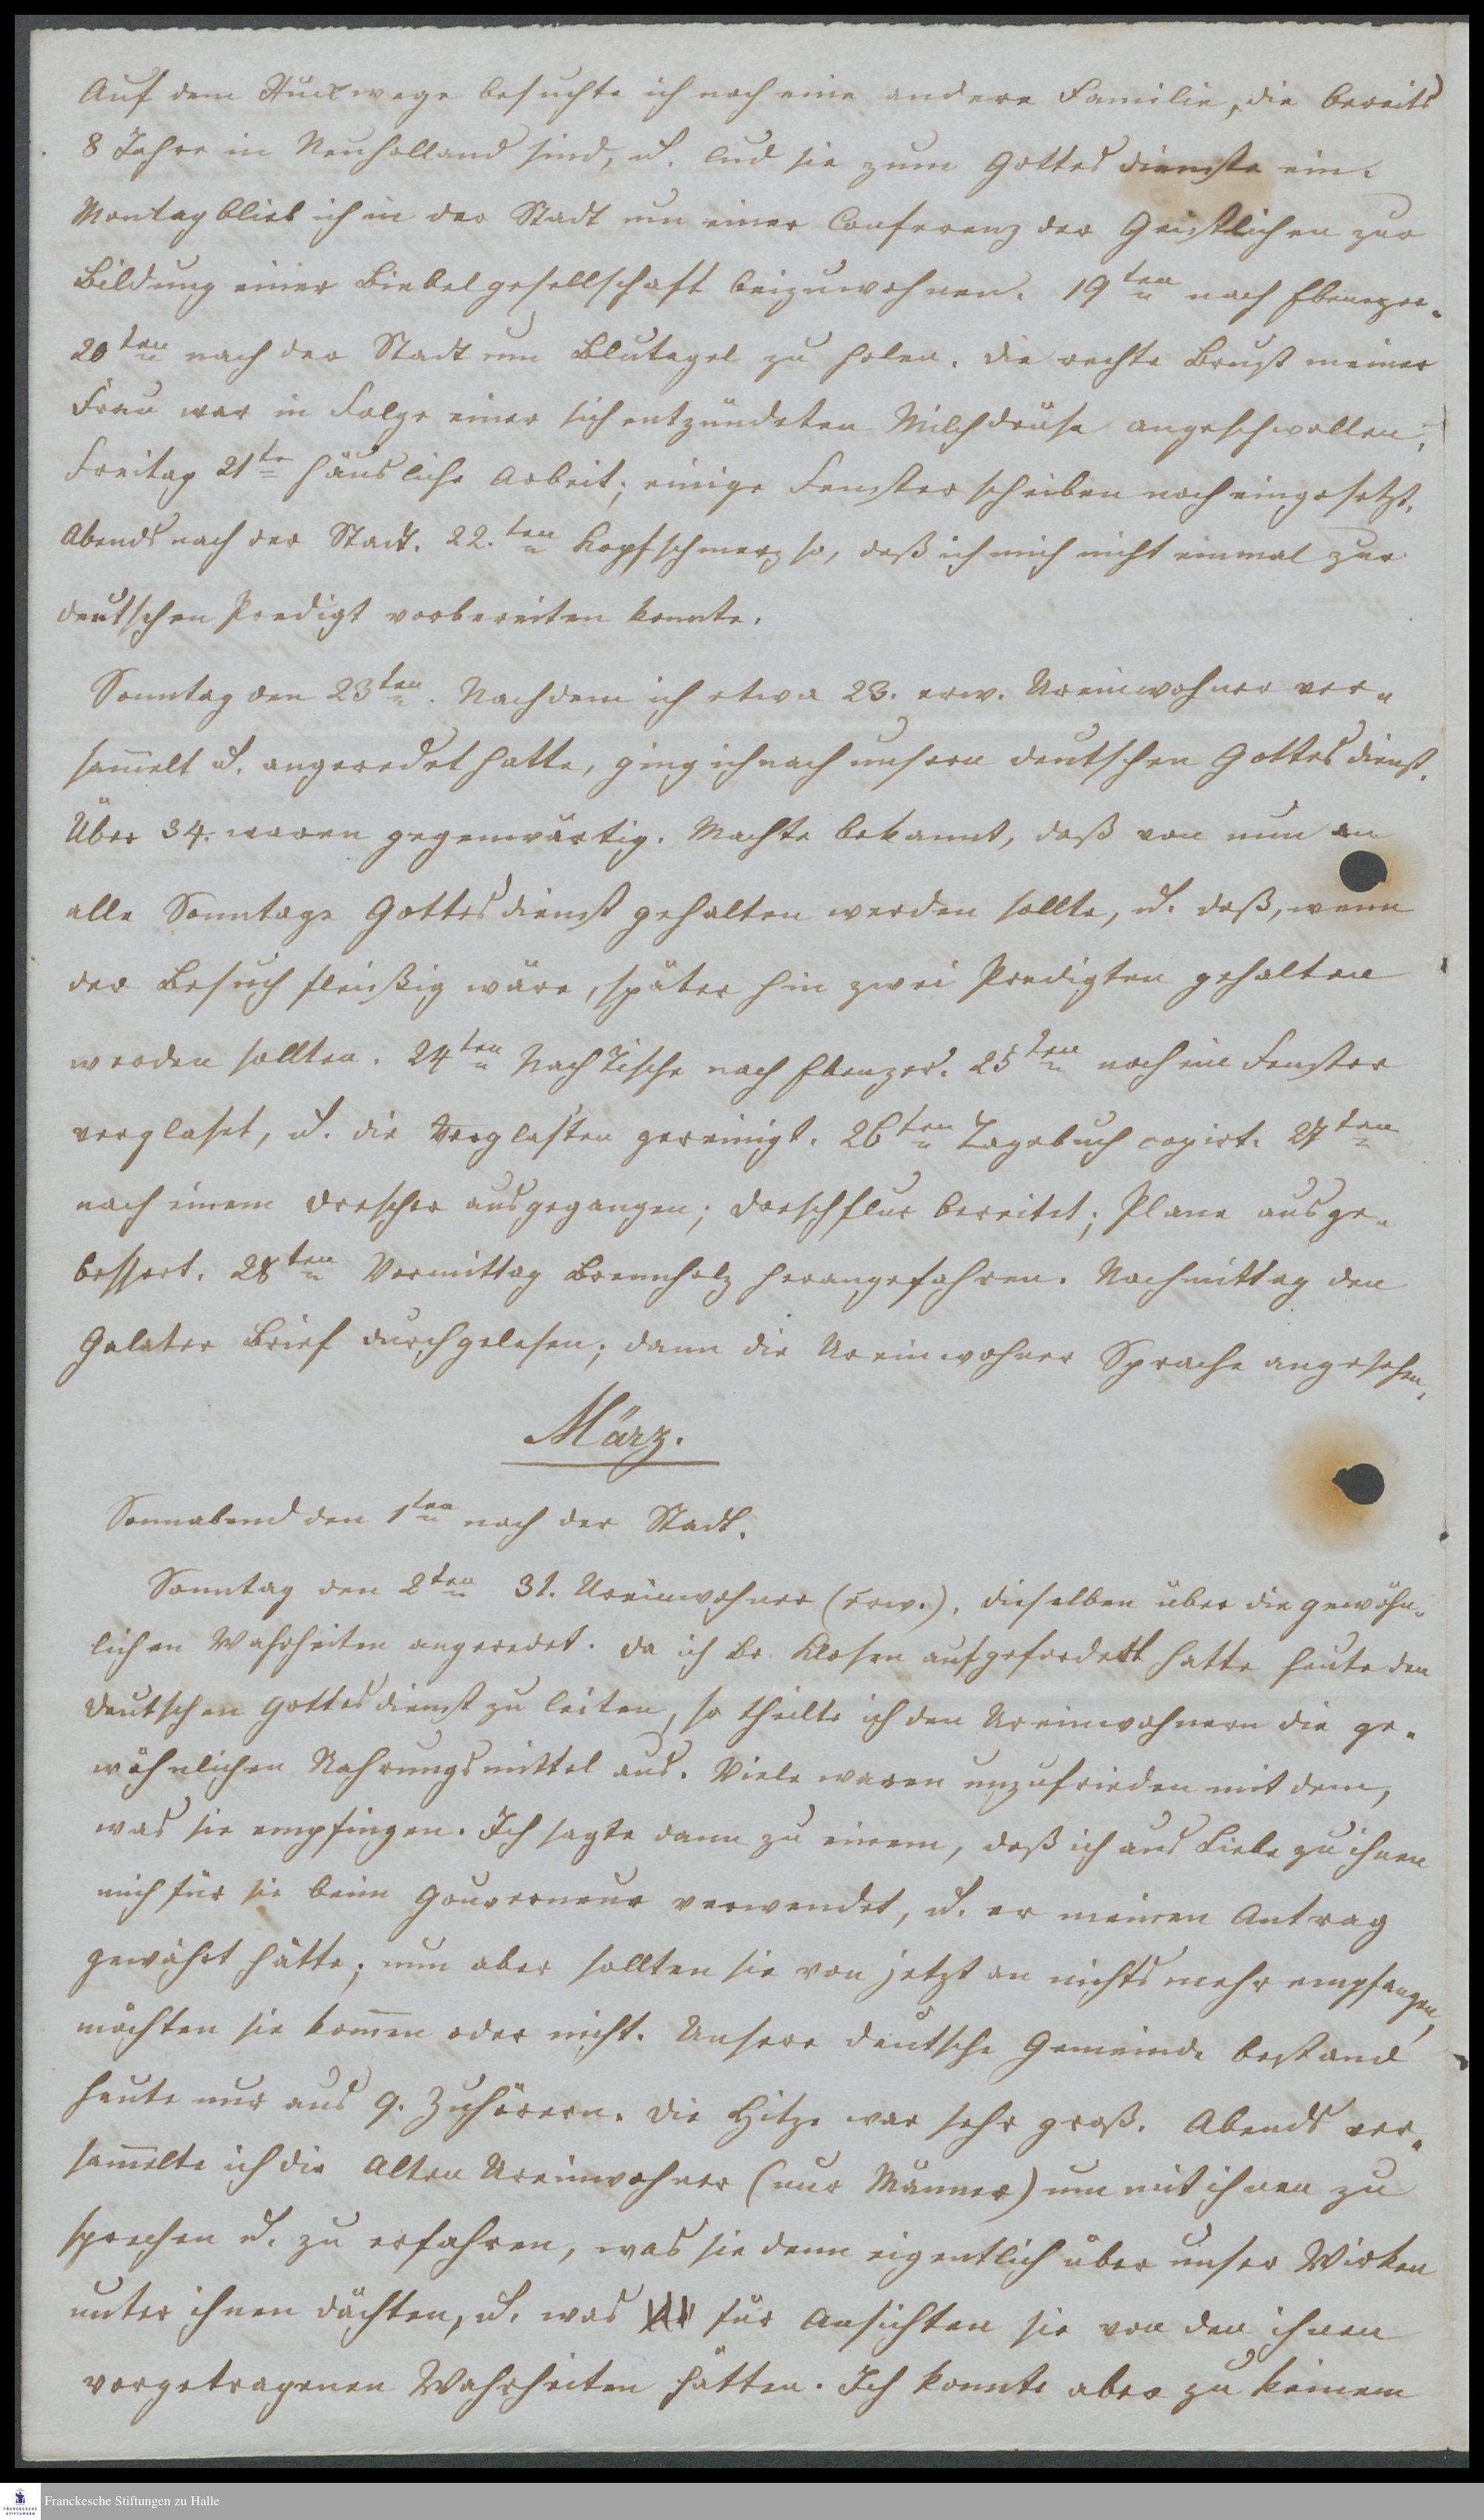 Auf dem Rückwege besuchte ich noch eine andere Familie, die bereits
8 Jahre in Neuholland sind, u. lud sie zum Gottesdienste ein.
Montag blieb ich in der Stadt um einer Conferenz der Geistlichen zur
Bildung einer Biebelgesellschaft beizuwohnen. 19ten nach Ebenezer.
20ten nach der Stadt um Blutegel zu holen. Die rechte Brust meiner
Frau war in Folge einer sich entzündeten Milchdrüse angeschwollen.
Freitag 21te häusliche Arbeit; einige Fensterscheiben noch eingesetzt.
Abends nach der Stadt. 22.ten Kopfschmerz so, daß ich mich nicht einmal zur
deutschen Predigt vorbereiten konnte.
Sonntag den 23ten. Nachdem ich etwa 23. erw. Ureinwohner ver-
sam̅elt u. angeredet hatte, ging ich nach unsern deutschen Gottesdienst.
Über 34. waren gegenwärtig. Machte bekannt, daß von nun an
alle Sonntage Gottesdienst gehalten werden sollte, u. daß, wenn
der Besuch fleißig wäre, später hin zwei Predigten gehalten
werden sollten. 24ten Nach Tische nach Ebenzer. 25ten noch ein Fenster
verglaset, u. die Verglasten gereinigt. 26ten Tagebuch copirt. 27ten
nach einem Drescher ausgegangen; Dreschflur bereitet; Plane ausge-
bessert. 28ten Vormittag Brennholz herangefahren. Nachmittag den
Galater Brief durchgelesen; dann die Ureinwohner Sprache angesehen.
März.
Sonnabend den 1ten nach der Stadt.
Sonntag den 2ten 31. Ureinwohner (erw.), dieselben über die gewöhn-
lichen Wahrheiten angeredet. Da ich Br. Klosen aufgefordert hatte heute den
deutschen Gottesdienst zu leiten, so theilte ich den Ureinwohnern die ge-
wöhnlichen Nahrungsmittel aus. Viele waren unzufrieden mit dem,
was sie empfingen. Ich sagte dann zu einem, daß ich aus Liebe zu ihnen
mich für sie beim Gouverneur verwendet, u. er meinen Antrag
gewährt hätte; nun aber sollten sie von jetzt an nichts mehr empfangen,
möchten sie kom̅en oder nicht. Unsere deutsche Gemeinde bestand
heute nur aus 9. Zuhörern. Die Hitze war sehr groß. Abends ver-
sam̅elte ich die Alten Ureinwohner (nur Männer) um mit ihnen zu
sprechen u. zu erfahren, was sie denn eigentlich über unser Wirken
unter ihnen dächten, u. was für Ansichten sie von den ihnen
vorgetragenen Wahrheiten hätten. Ich konnte aber zu keinem
Franckesche Stiftungen zu Halle